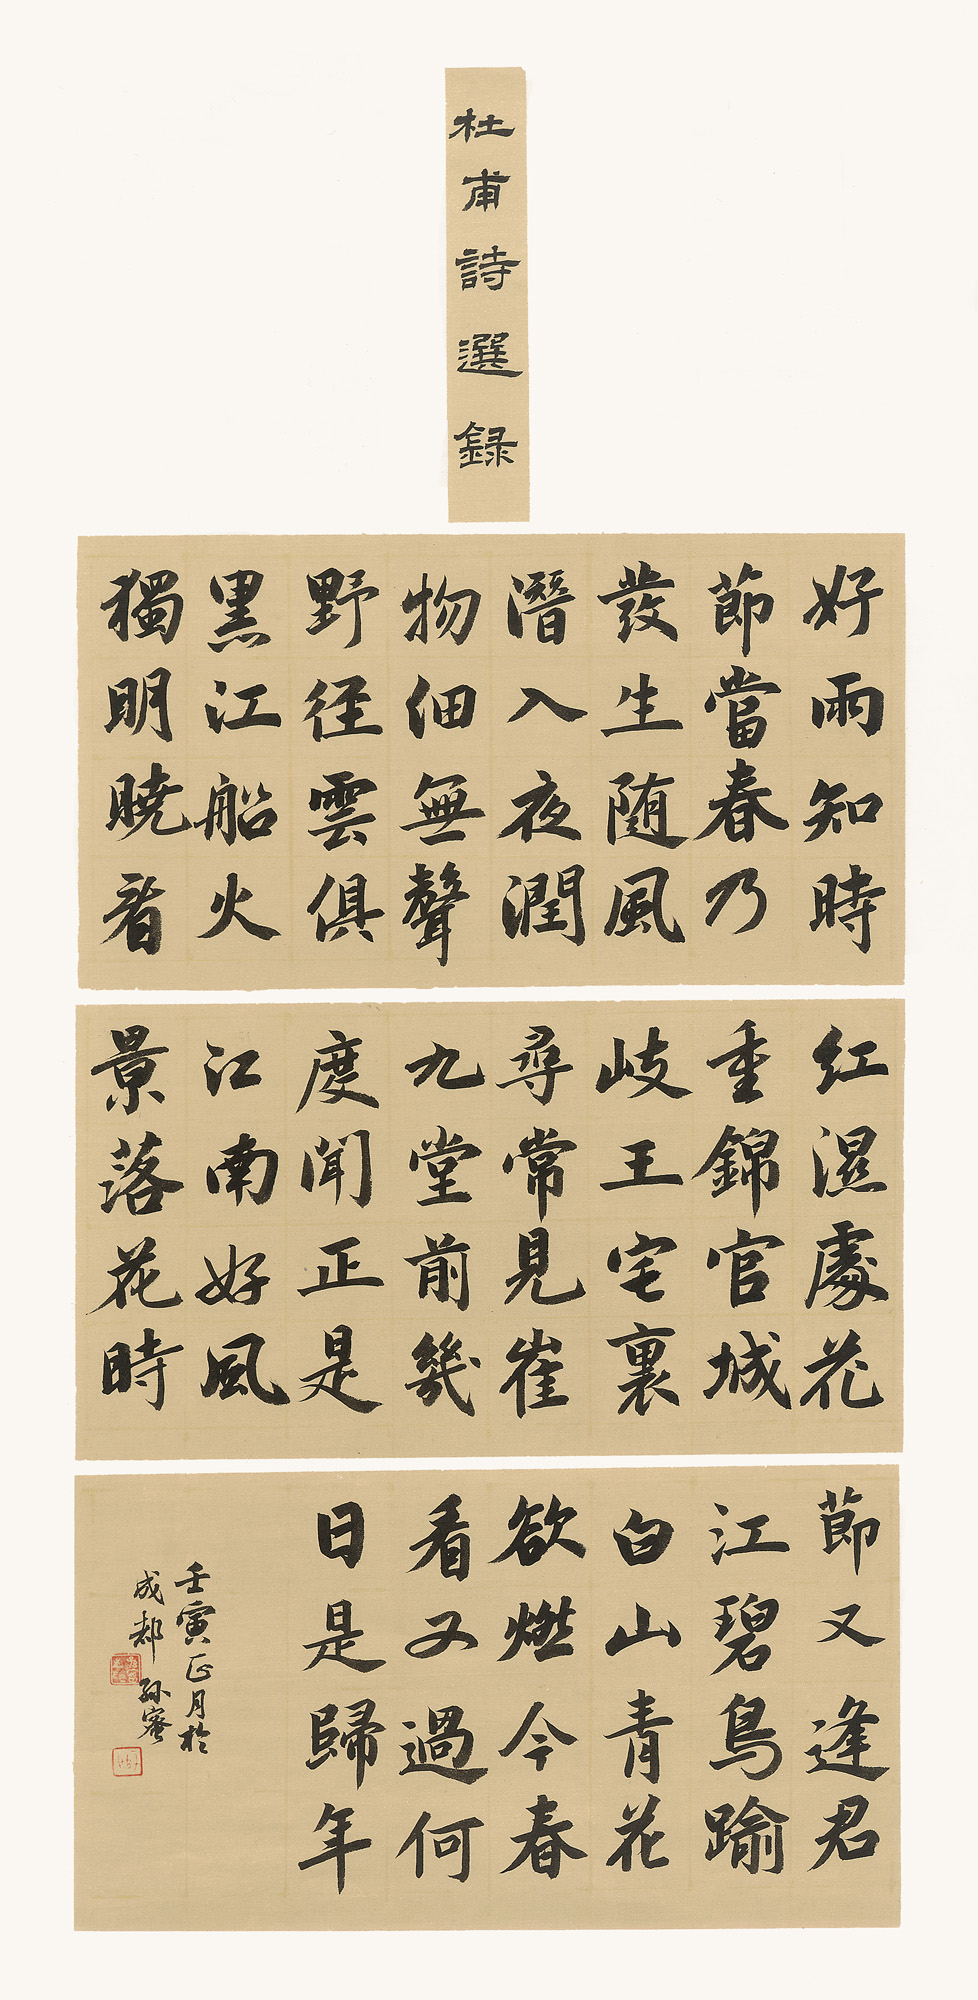 杜甫詩選録
好雨知時
節當春乃
發生随風
潛入夜潤
物細無聲
野径雲俱
黑江船火
獨明曉看
紅濕處花
重錦官城
岐王宅裏
尋常見崔
九堂前幾
度聞正是
江南好風
景落花時
節又逢君
江碧鳥踰
白山青花
欲燃今春
看又過何
日是歸年
壬寅正月於
成都 孙